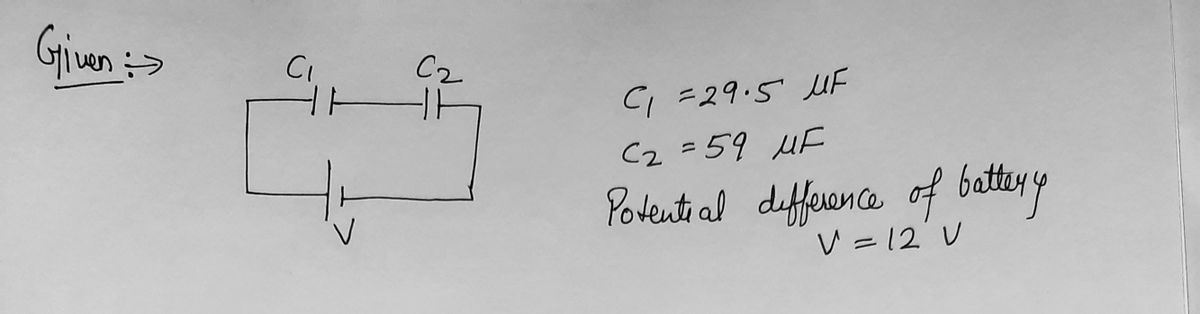 Given :→
C1 C2
V
C1 = 29.5 μF
C2 = 59 μF
Potential difference of battery
V = 12 V